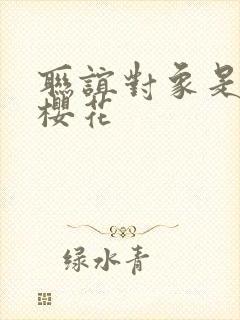 聯誼對象是
櫻花
绿水青